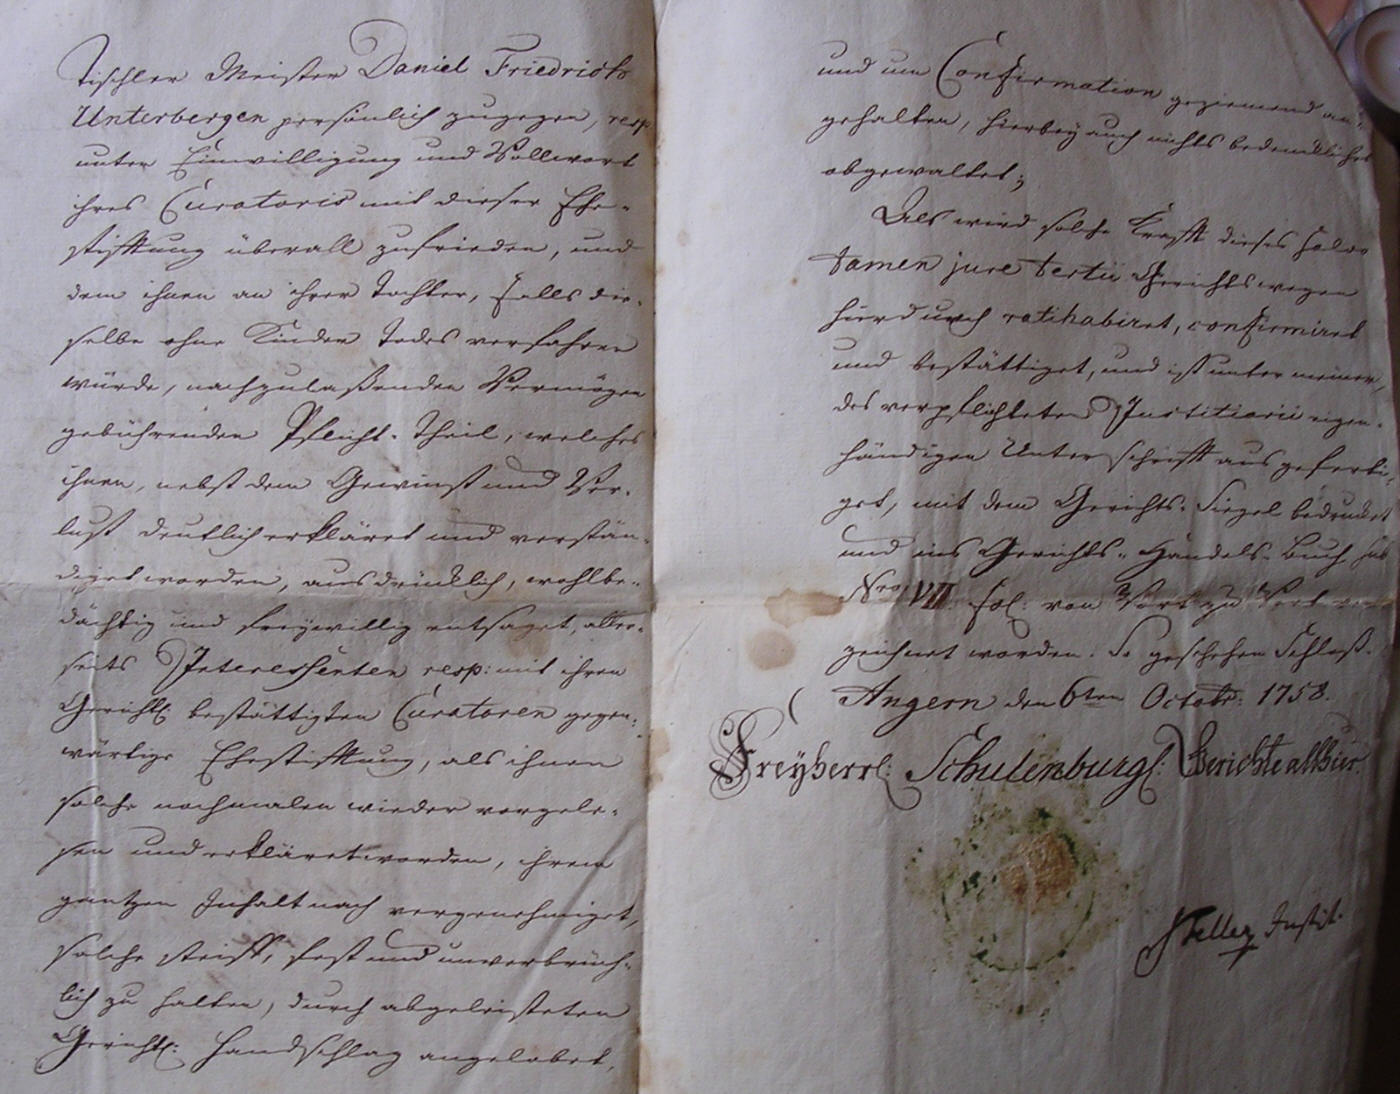 Tischler Meister Daniel Friedrich
Unterbergen persönlich zugegen, resp
unter Einwilligung und Vollwort
ihres Curatoris mit dieser Ehe-
stifftung überall zufrieden, und
dem ihnen an ihrer Tochter, falls die-
selbe ohne Kinder Todes verfahren
würde, nachzulaßenden Vermögen
gebührenden Pflicht-Theil, welches
ihnen, nebst dem Gewinst und Ver-
lust deutlich erkläret und verstän-
diget worden, ausdrücklich, wohlbe-
dächtig und freywillig entsaget, aller-
seits Interessenten resp: mit ihren
Gerichtl: bestättigten Curatoren gegen-
wärtige Ehestifftung, als ihnen
solche nochmalen wieder vorgele-
sen und erkläret worden, ihrem
gantzen Inhalt nach vergenehmiget,
solche steiff, fest und unverbrüch-
lich zu halten, durch abgeleisteten
Gerichtl: Handschlag angelobet,
und um Confirmation geziemend an-
gehalten, hierbey auch nichts bedenckliches
obgewaltet;
Als wird solche Krafft dieses salvo
tamen jure tertii Gerichtswegen
hierdurch ratihabiret, confirmiret
und bestättiget, und ist unter meiner,
des verpflichteten Justitiarii eigen-
händigen Unterschrifft ausgeferti-
get, mit dem Gerichts-Siegel bedrucket
und ins Gerichts-Handels-Buch sub
Nro VII. fol: von Wort zu Wort
zeichnet worden. So geschehen Schloß-
Angern den 6ten Octobr: 1758.
Freyherrl: Schulenburgl: Gerichte allhier.
Keller Justit: